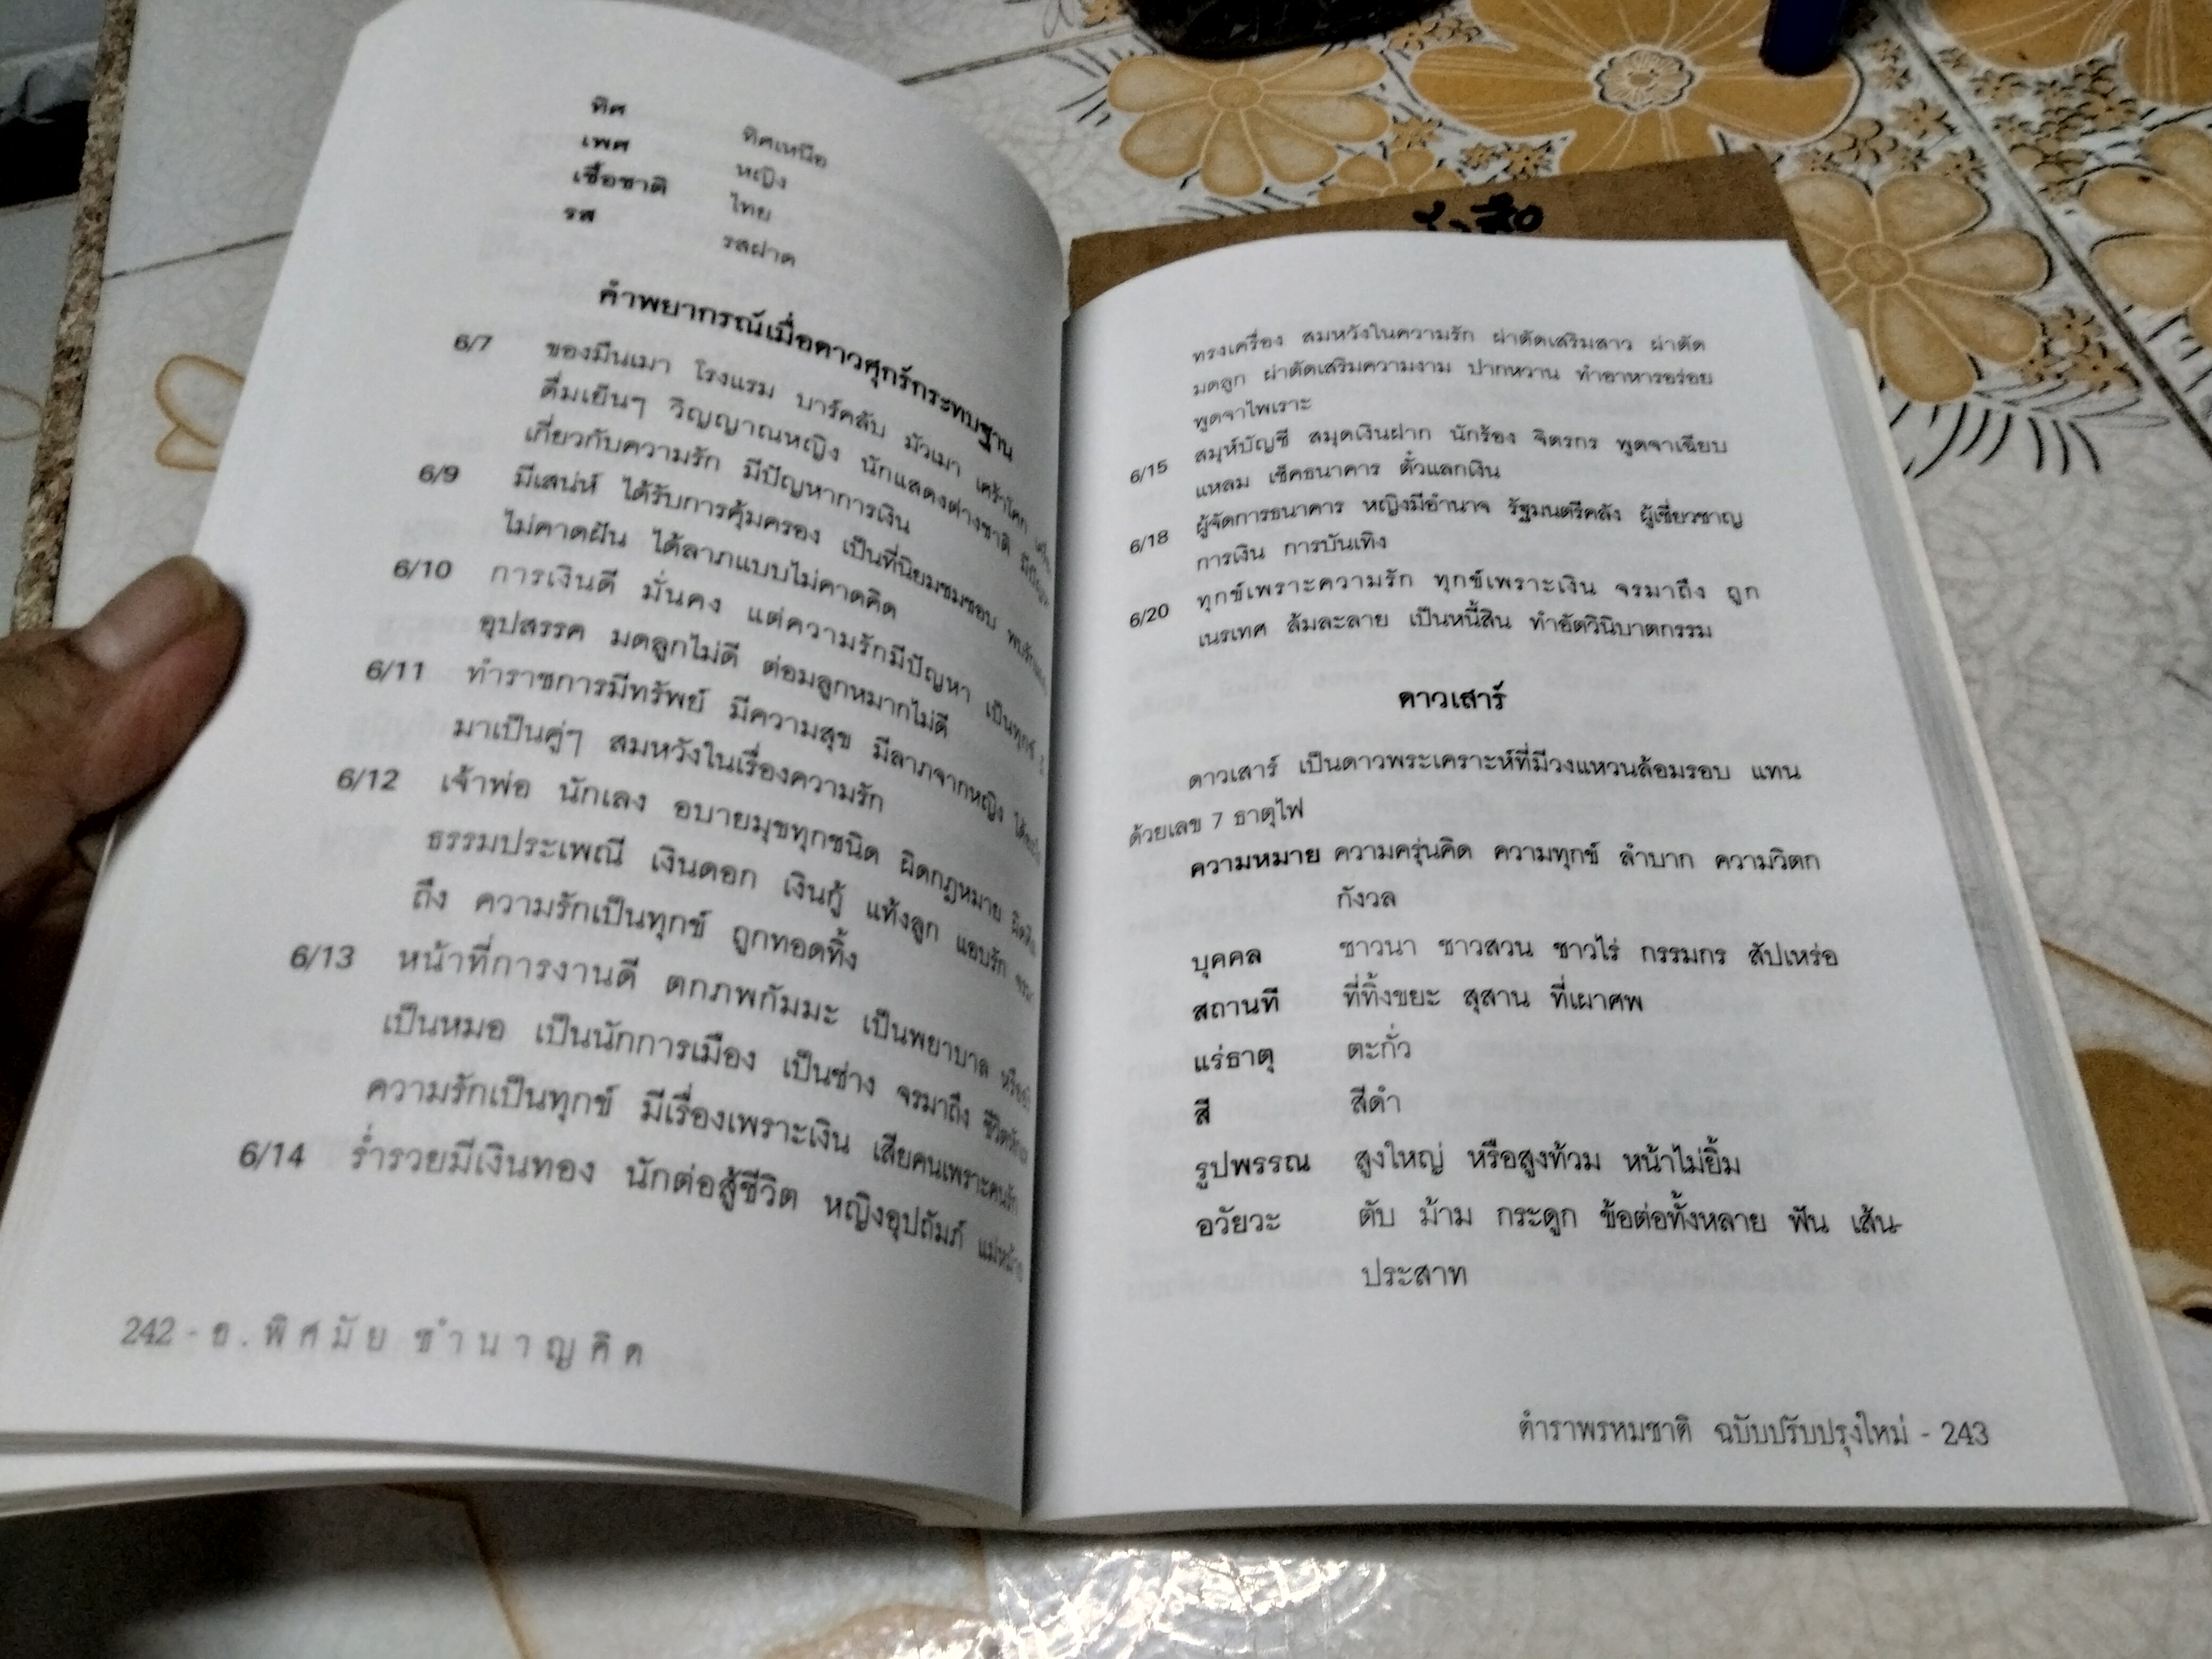 ทิศ ทิศเหนือ
เพศ หญิง
เชื้อชาติ ไทย
รส รสฝาด
คำพยากรณ์เมื่อดาวศุกร์กระทบฐาน
6/7 ของมึนเมา โรงแรม บาร์คลับ มัวเมา เศร้าโศก
ดื่มเย็นๆ วิญญาณหญิง นักแสดงต่างชาติ
เกี่ยวกับความรัก มีปัญหาการเงิน
6/9 มีเสน่ห์ ได้รับการคุ้มครอง เป็นที่นิยมชมชอบ
ไม่คาดฝัน ได้ลาภแบบไม่คาดคิด
6/10 การเงินดี มั่นคง แต่ความรักมีปัญหา เป็นทุกข์
อุปสรรค มดลูกไม่ดี ต่อมลูกหมากไม่ดี
6/11 ทำราชการมีทรัพย์ มีความสุข มีลาภจากหญิง
มาเป็นคู่ๆ สมหวังในเรื่องความรัก
6/12 เจ้าพ่อ นักเลง อบายมุขทุกชนิด ผิดกฎหมาย
ธรรมประเพณี เงินดอก เงินกู้ แท้งลูก แอบรัก จรมา
ถึง ความรักเป็นทุกข์ ถูกทอดทิ้ง
6/13 หน้าที่การงานดี ตกภพกัมมะ เป็นพยาบาล
เป็นหมอ เป็นนักการเมือง เป็นช่าง จรมาถึง
ความรักเป็นทุกข์ มีเรื่องเพราะเงิน เสียคนเพราะคนรัก
6/14 ร่ำรวยมีเงินทอง นักต่อสู้ชีวิต หญิงอุปถัมภ์ แม่หม้าย
242 - อ.พิศมัย ชำนาญคิด
ทรงเครื่อง สมหวังในความรัก ผ่าตัดเสริมสาว ผ่าตัด
มดลูก ผ่าตัดเสริมความงาม ปากหวาน ทำอาหารอร่อย
พูดจาไพเราะ
6/15 สมุห์บัญชี สมุดเงินฝาก นักร้อง จิตรกร พูดจาเฉียบ
แหลม เช็คธนาคาร ตั๋วแลกเงิน
6/18 ผู้จัดการธนาคาร หญิงมีอำนาจ รัฐมนตรีคลัง ผู้เชี่ยวชาญ
การเงิน การบันเทิง
6/20 ทุกข์เพราะความรัก ทุกข์เพราะเงิน จรมาถึง ถูก
เนรเทศ ล้มละลาย เป็นหนี้สิน ทำอัตวินิบาตกรรม
ดาวเสาร์
ดาวเสาร์ เป็นดาวพระเคราะห์ที่มีวงแหวนล้อมรอบ แทน
ด้วยเลข 7 ธาตุไฟ
ความหมาย ความครุ่นคิด ความทุกข์ ลำบาก ความวิตก
กังวล
บุคคล ชาวนา ชาวสวน ชาวไร่ กรรมกร สัปเหร่อ
สถานที่ ที่ทิ้งขยะ สุสาน ที่เผาศพ
แร่ธาตุ ตะกั่ว
สี สีดำ
รูปพรรณ สูงใหญ่ หรือสูงท้วม หน้าไม่ยิ้ม
อวัยวะ ตับ ม้าม กระดูก ข้อต่อทั้งหลาย ฟัน เส้น-
ประสาท
ตำราพรหมชาติ ฉบับปรับปรุงใหม่ - 243